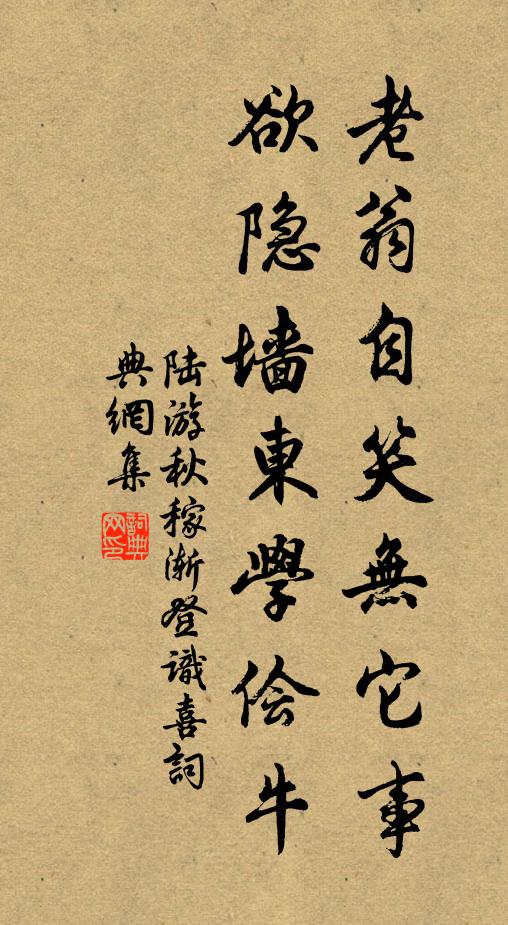 老翁自笑無它事
欲隐墙東學侩牛
陆游秋稼渐登識喜詞
典網集
詞典
网印